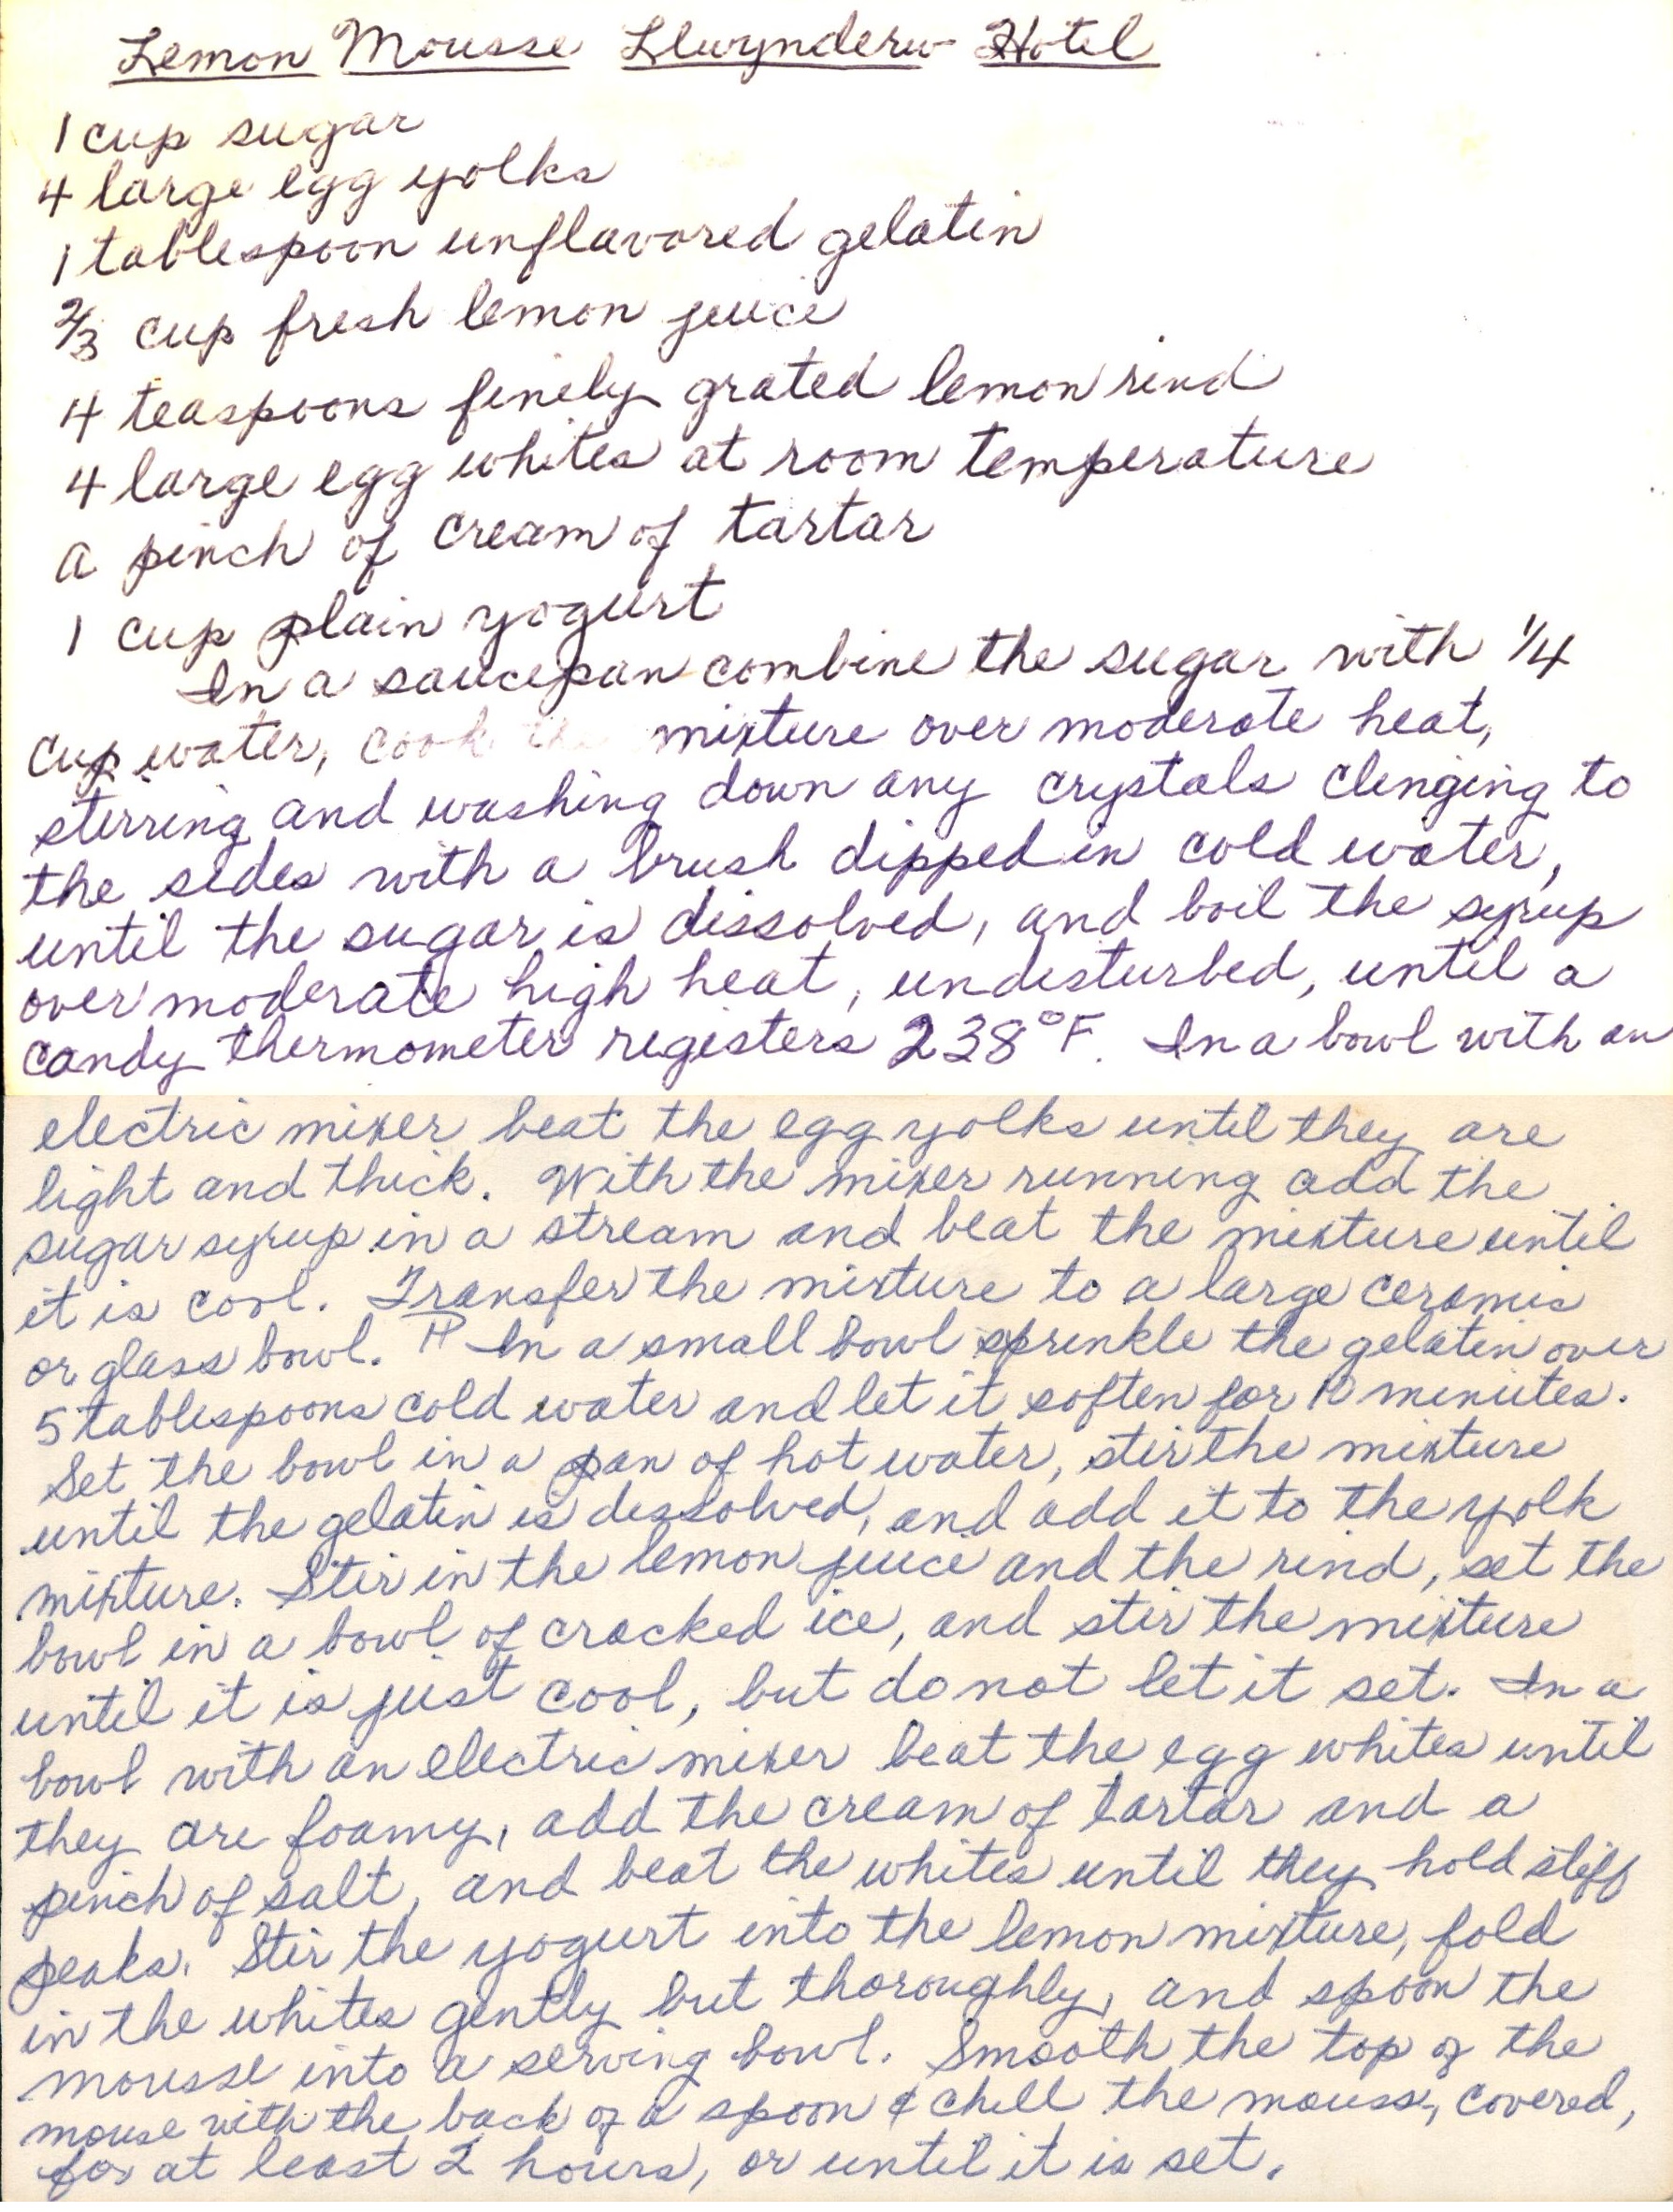 Lemon Mousse Llwynderw Hotel
1 cup sugar
4 large egg yolks
1 tablespoon unflavored gelatin
2/3 cup fresh lemon juice
4 teaspoons finely grated lemon rind
4 large egg whites at room temperature
a pinch of cream of tartar
1 cup plain yogurt
In a saucepan combine the sugar with 1/4
cup water, cook the mixture over moderate heat,
stirring and washing down any crystals clinging to
the sides with a brush dipped in cold water,
until the sugar is dissolved, and boil the syrup
over moderate high heat, undisturbed, until a
candy thermometer registers 238°F. In a bowl with an
electric mixer beat the egg yolks until they are
light and thick. With the mixer running add the
sugar syrup in a stream and beat the mixture until
it is cool. Transfer the mixture to a large ceramic
or glass bowl. ¶ In a small bowl sprinkle the gelatin over
5 tablespoons cold water and let it soften for 10 minutes.
Set the bowl in a pan of hot water, stir the mixture
until the gelatin is dissolved, and add it to the yolk
mixture. Stir in the lemon juice and the rind, set the
bowl in a bowl of cracked ice, and stir the mixture
until it is just cool, but do not let it set. In a
bowl with an electric mixer beat the egg whites until
they are foamy, add the cream of tartar and a
pinch of salt, and beat the whites until they hold stiff
peaks. Stir the yogurt into the lemon mixture, fold
in the whites gently but thoroughly, and spoon the
mousse into a serving bowl. Smooth the top of the
mouse with the back of a spoon & chill the mousse, covered,
for at least 2 hours, or until it is set.